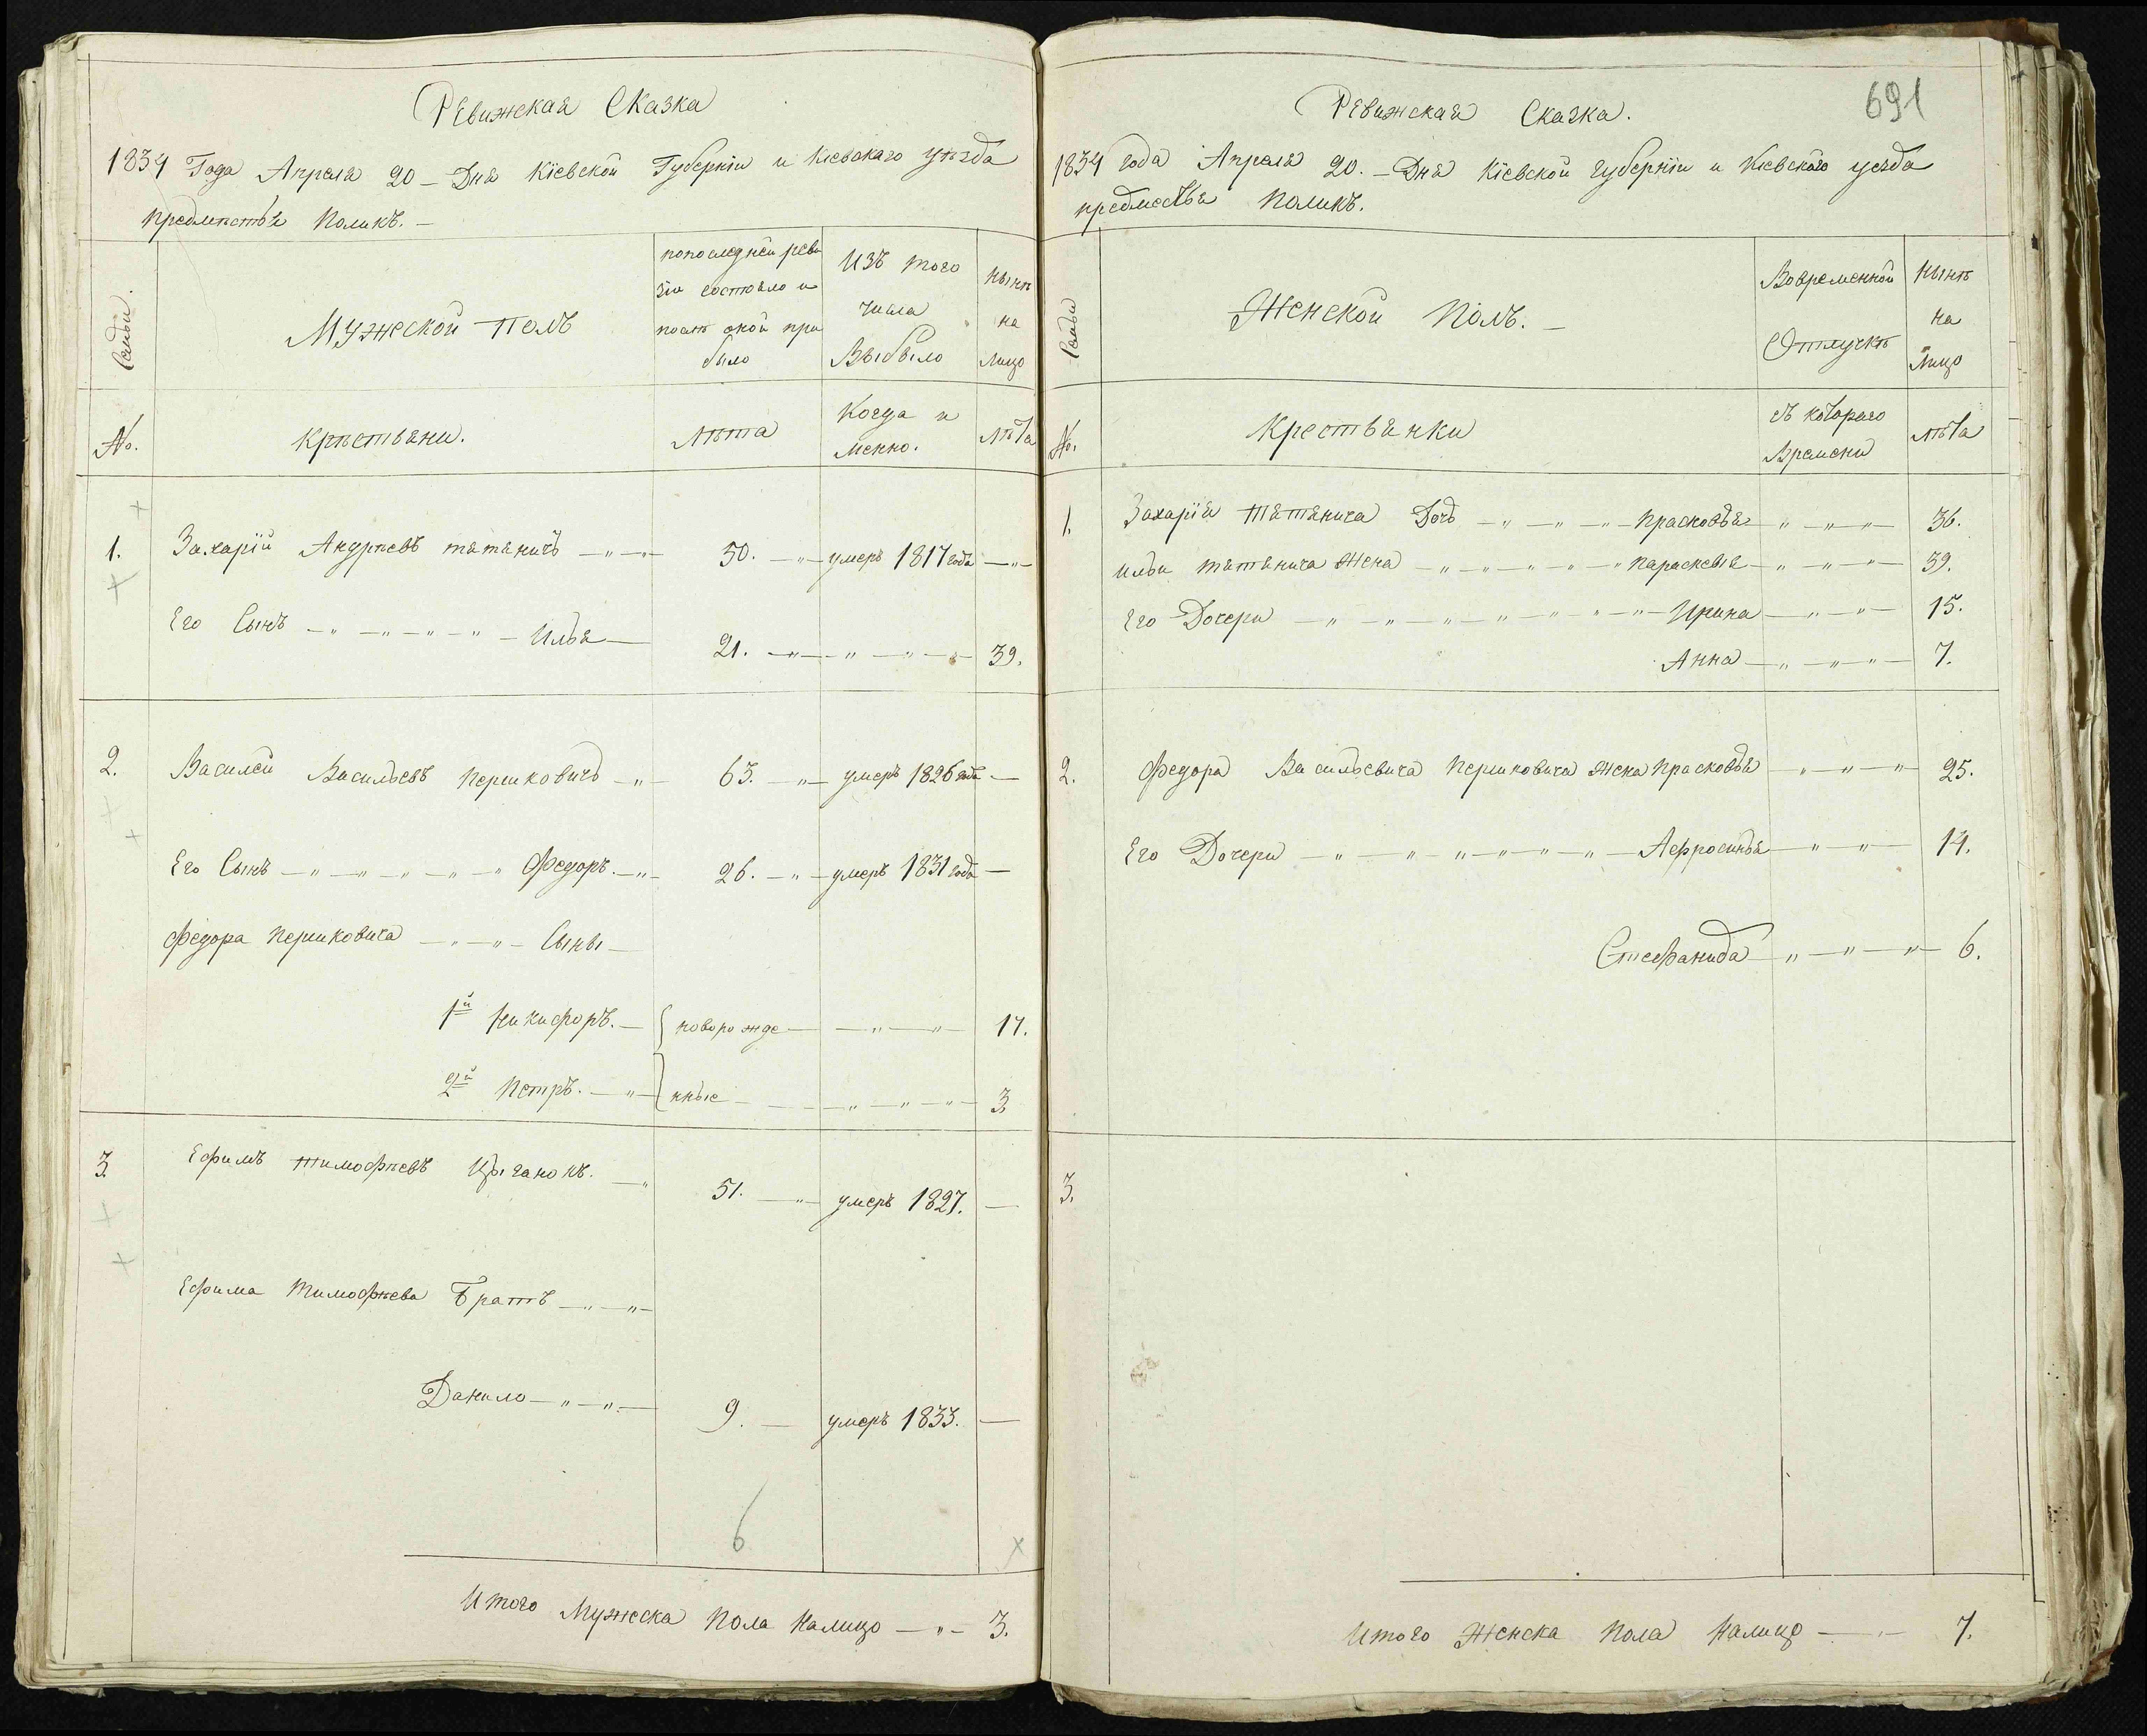 Ревижская Сказка
1834 Года Апреля 20 – Дня Кіевской Губерніи и Кіевскаго уѣзда
предмѣстья Паликъ. –
Мужеской полъ
попоследнеи реви
зіи состояло и
послѣ оной при
было
Изъ того
числа
Выбыло
нынѣ
на
лицо
No.
Крѣстьяни.
Лѣта
Когда и
менно.
лѣта
1. Захарій Андрѣевъ татаничъ 50. умеръ 1817 года
Его Сынъ Илья 21. 39.
2. Василей Васильевъ Першковичъ 63. умеръ 1826 года
Его Сынъ Федоръ. 26. умеръ 1831 года
Федора Першковича Сыны
1й Никифоръ. новорожде 17.
2й Петръ. нные 3
3 Ефимъ тимофѣевъ Цыганокъ. 51. умеръ 1827.
Ефима Тимофѣева Братъ
Данило 9. умеръ 1833.
6
Итого Мужеска Пола Налицо 3.
691
Ревижская Сказка.
1834 года Апреля 20. – Дня Кіевской губерніи и Кіевского уезда
предместья Паликъ.
Женской Полъ. –
Вовременной
Отлучкѣ
нынѣ
на
лицо
No.
Крестьянки
съ котораго
Времени
лѣта
1. Захарія татанича Дочь Прасковья 36.
Ильи татанича Жена Параскевія 39.
Его Дочери Ирина 15.
Анна 7.
2. Федора Васильевича Першковича Жена Прасковья 25.
Его Дочери Аефросинья 14.
Стефанида 6.
3.
Итого Женска Пола Налицо 7.